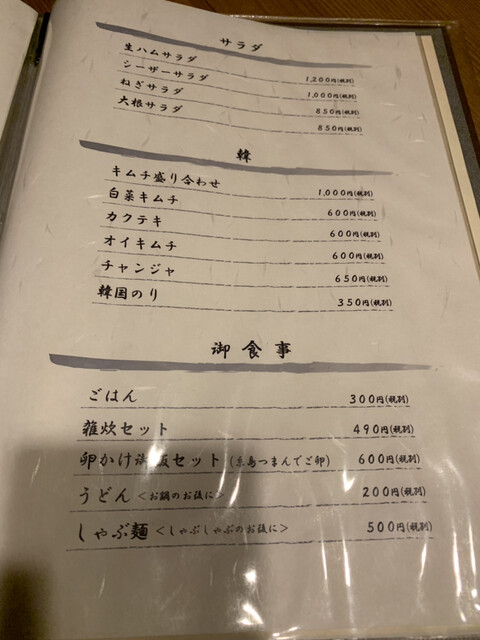 サラダ
生ハムサラダ 1,200円(税別)
シーザーサラダ 1,000円(税別)
ねぎサラダ 850円(税別)
大根サラダ 850円(税別)
韓
キムチ盛り合わせ 1,000円(税別)
白菜キムチ 600円(税別)
カクテキ 600円(税別)
オイキムチ 600円(税別)
チャンジャ 650円(税別)
韓国のり 350円(税別)
御食事
ごはん 300円(税別)
雑炊セット 490円(税別)
卵かけ御飯セット (糸島つまんでご卵) 600円(税別)
うどん <お鍋のお後に> 200円(税別)
しゃぶ麺 <しゃぶしゃぶのお後に> 500円(税別)